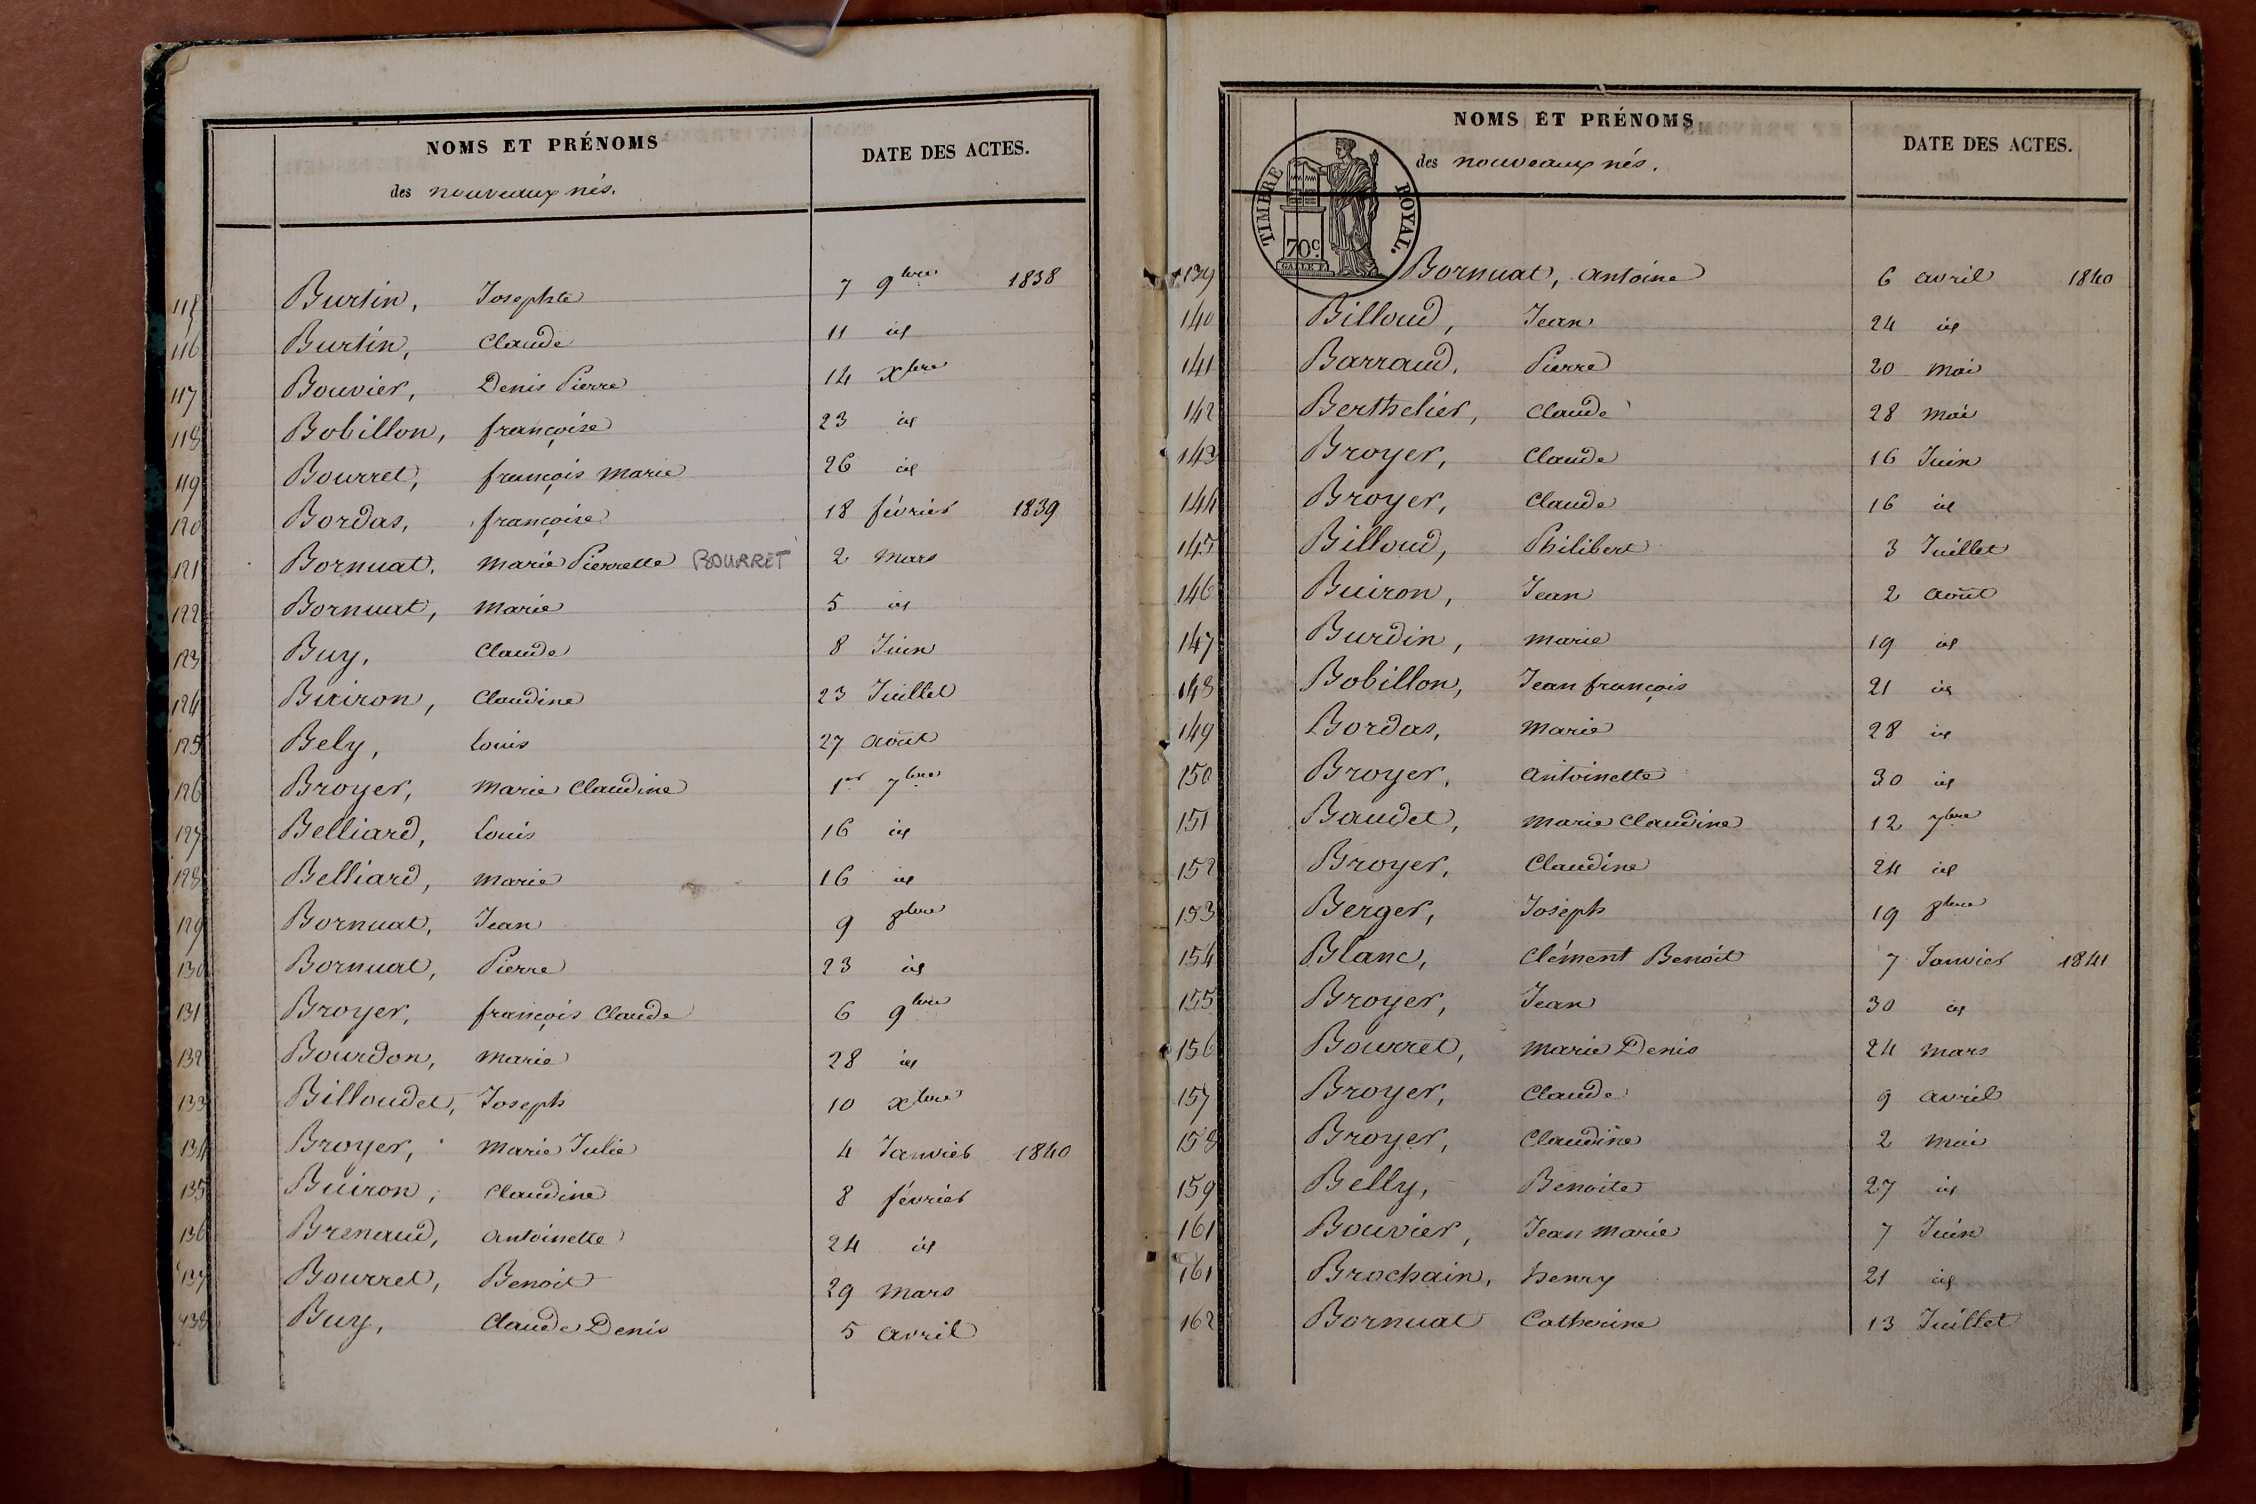 NOMS ET PRÉNOMS
des nouveaux nés.
DATE DES ACTES.
115 Burtin, Josephte 7 9bre 1838
116 Burtin, Claude 11 id
117 Bouvier, Denis Pierre 14 Xbre
118 Bobillon, françoise 23 id
119 Bourret, françois marie 26 id
120 Bordas, françoise 18 février 1839
121 Bornuat, marie Pierrette BOURRET 2 mars
122 Bornuat, marie 5 id
123 Buy, Claude 8 Juin
124 Buiron, Claudine 23 Juillet
125 Bely, Louis 27 août
126 Broyer, marie Claudine 1er 7bre
127 Belliard, Louis 16 id
128 Belliard, marie 16 id
129 Bornuat, Jean 9 8bre
130 Bornuat, Pierre 23 id
131 Broyer, françois Claude 6 9bre
132 Bourdon, marie 28 id
133 Billoudet, Joseph 10 Xbre
134 Broyer, marie Julie 4 Janvier 1840
135 Buiron, Claudine 8 février
136 Brenaud, antoinette 24 id
137 Bourret, Benoit 29 mars
138 Buy, Claude Denis 5 avril
NOMS ET PRÉNOMS
des nouveaux nés.
DATE DES ACTES.
TIMBRE ROYAL.
70c
139 Bornuat, antoine 6 avril 1840
140 Billoud, Jean 24 id
141 Barraud, Pierre 20 mai
142 Berthelier, Claude 28 mai
143 Broyer, Claude 16 Juin
144 Broyer, Claude 16 id
145 Billoud, Philibert 3 Juillet
146 Buiron, Jean 2 août
147 Burdin, marie 19 id
148 Bobillon, Jean françois 21 id
149 Bordas, marie 28 id
150 Broyer, antoinette 30 id
151 Baudet, marie Claudine 12 7bre
152 Broyer, Claudine 24 id
153 Berger, Joseph 19 8bre
154 Blanc, Clément Benoit 7 Janvier 1841
155 Broyer, Jean 30 id
156 Bourret, marie Denis 24 mars
157 Broyer, Claude 9 avril
158 Broyer, Claudine 2 mai
159 Belly, Benoite 27 id
161 Bouvier, Jean marie 7 Juin
161 Brochain, henry 21 id
162 Bornuat Catherine 13 Juillet